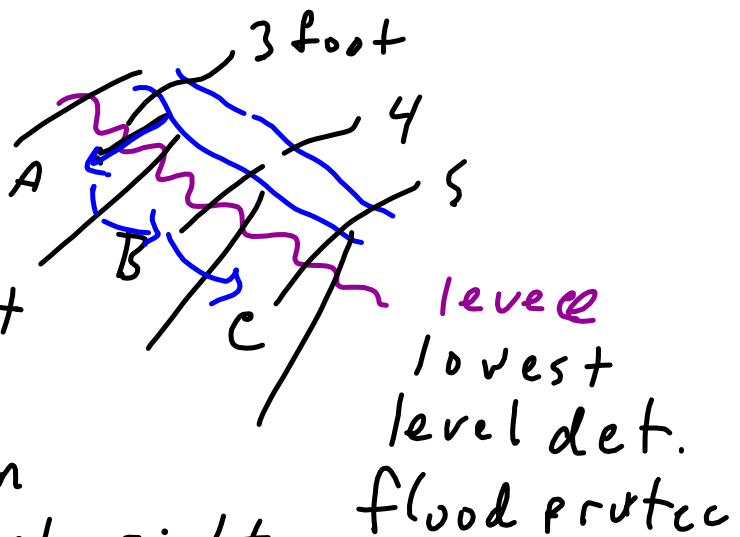 3 foot
4
A
5
B
levee
C
lowest
level det.
flood protec